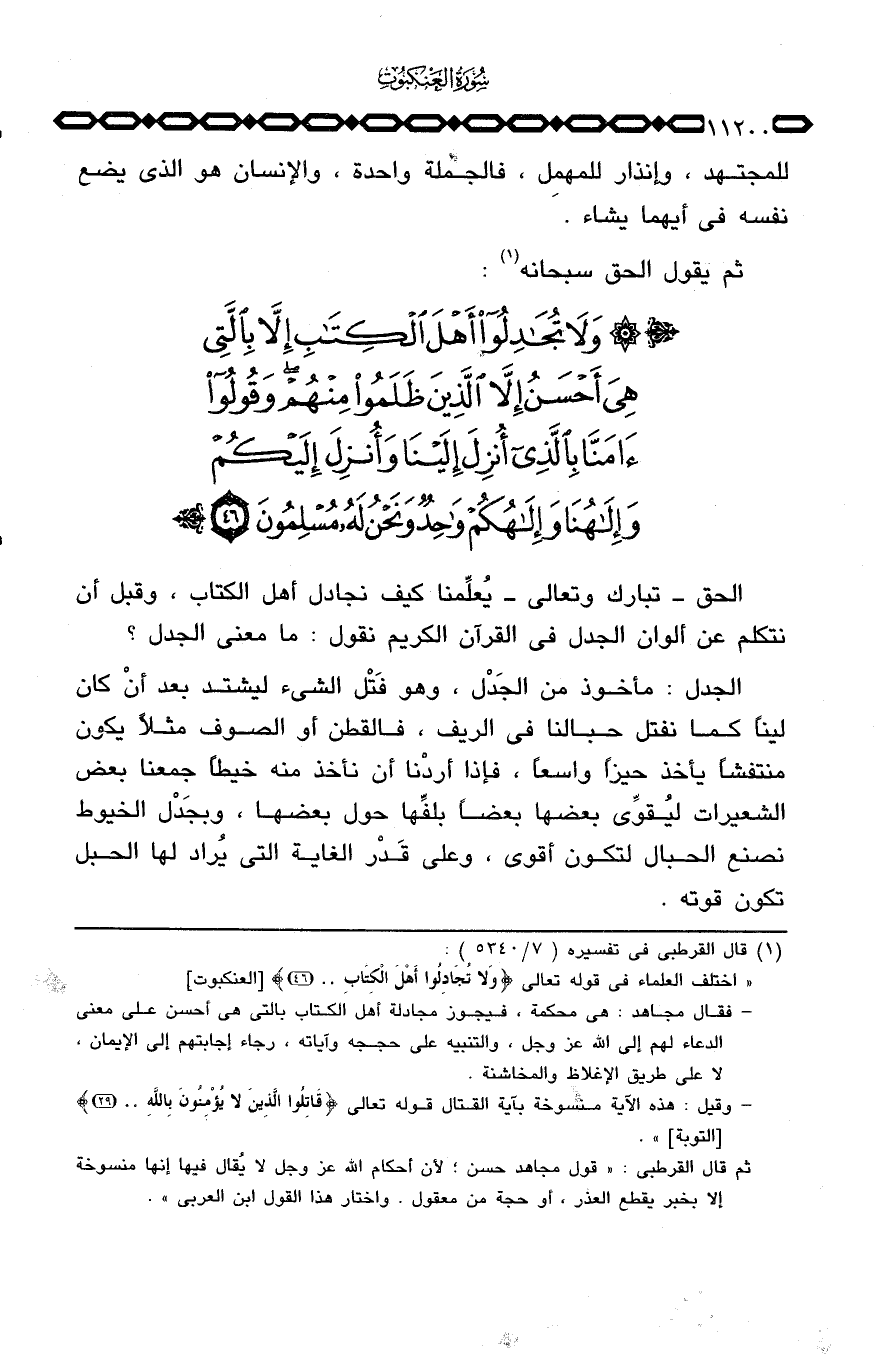 سُورَةُ العَنْكَبُوتِ
١١٢٠٠
للمجتهد ، وإنذار للمهمل ، فالجملة واحدة ، والإنسان هو الذى يضع
نفسه فى أيهما يشاء .
ثم يقول الحق سبحانه(١) :
﴿ ۞ وَلَا تُجَٰدِلُوٓا۟ أَهْلَ ٱلْكِتَٰبِ إِلَّا بِٱلَّتِى
هِىَ أَحْسَنُ إِلَّا ٱلَّذِينَ ظَلَمُوا۟ مِنْهُمْ ۖ وَقُولُوٓا۟
ءَامَنَّا بِٱلَّذِىٓ أُنزِلَ إِلَيْنَا وَأُنزِلَ إِلَيْكُمْ
وَإِلَٰهُنَا وَإِلَٰهُكُمْ وَٰحِدٌ وَنَحْنُ لَهُۥ مُسْلِمُونَ ٤٦ ﴾
الحق – تبارك وتعالى – يُعلِّمنا كيف نجادل أهل الكتاب ، وقبل أن
نتكلم عن ألوان الجدل فى القرآن الكريم نقول : ما معنى الجدل ؟
الجدل : مأخوذ من الجَدْل ، وهو فَتْل الشىء ليشتد بعد أنْ كان
ليناً كما نفتل حبالنا فى الريف ، فالقطن أو الصوف مثلاً يكون
منتفشاً يأخذ حيزاً واسعاً ، فإذا أردْنا أن نأخذ منه خيطاً جمعنا بعض
الشعيرات ليُقوِّى بعضها بعضاً بلفِّها حول بعضها ، وبجَدْل الخيوط
نصنع الحبال لتكون أقوى ، وعلى قَدْر الغاية التى يُراد لها الحبل
تكون قوته .
(١) قال القرطبى فى تفسيره ( ٥٣٤٠/٧ ) :
« اختلف العلماء فى قوله تعالى ﴿وَلا تُجَادِلُوا أَهْلَ الْكِتَابِ .. (٤٦)﴾ [العنكبوت]
– فقال مجاهد : هى محكمة ، فيجوز مجادلة أهل الكتاب بالتى هى أحسن على معنى
الدعاء لهم إلى الله عز وجل ، والتنبيه على حججه وآياته ، رجاء إجابتهم إلى الإيمان ،
لا على طريق الإغلاظ والمخاشنة .
– وقيل : هذه الآية منسوخة بآية القتال قوله تعالى ﴿قَاتِلُوا الَّذِينَ لا يُؤْمِنُونَ بِاللَّهِ .. (٢٩)﴾
[التوبة] » .
ثم قال القرطبى : « قول مجاهد حسن ؛ لأن أحكام الله عز وجل لا يُقال فيها إنها منسوخة
إلا بخبر يقطع العذر ، أو حجة من معقول . واختار هذا القول ابن العربى » .